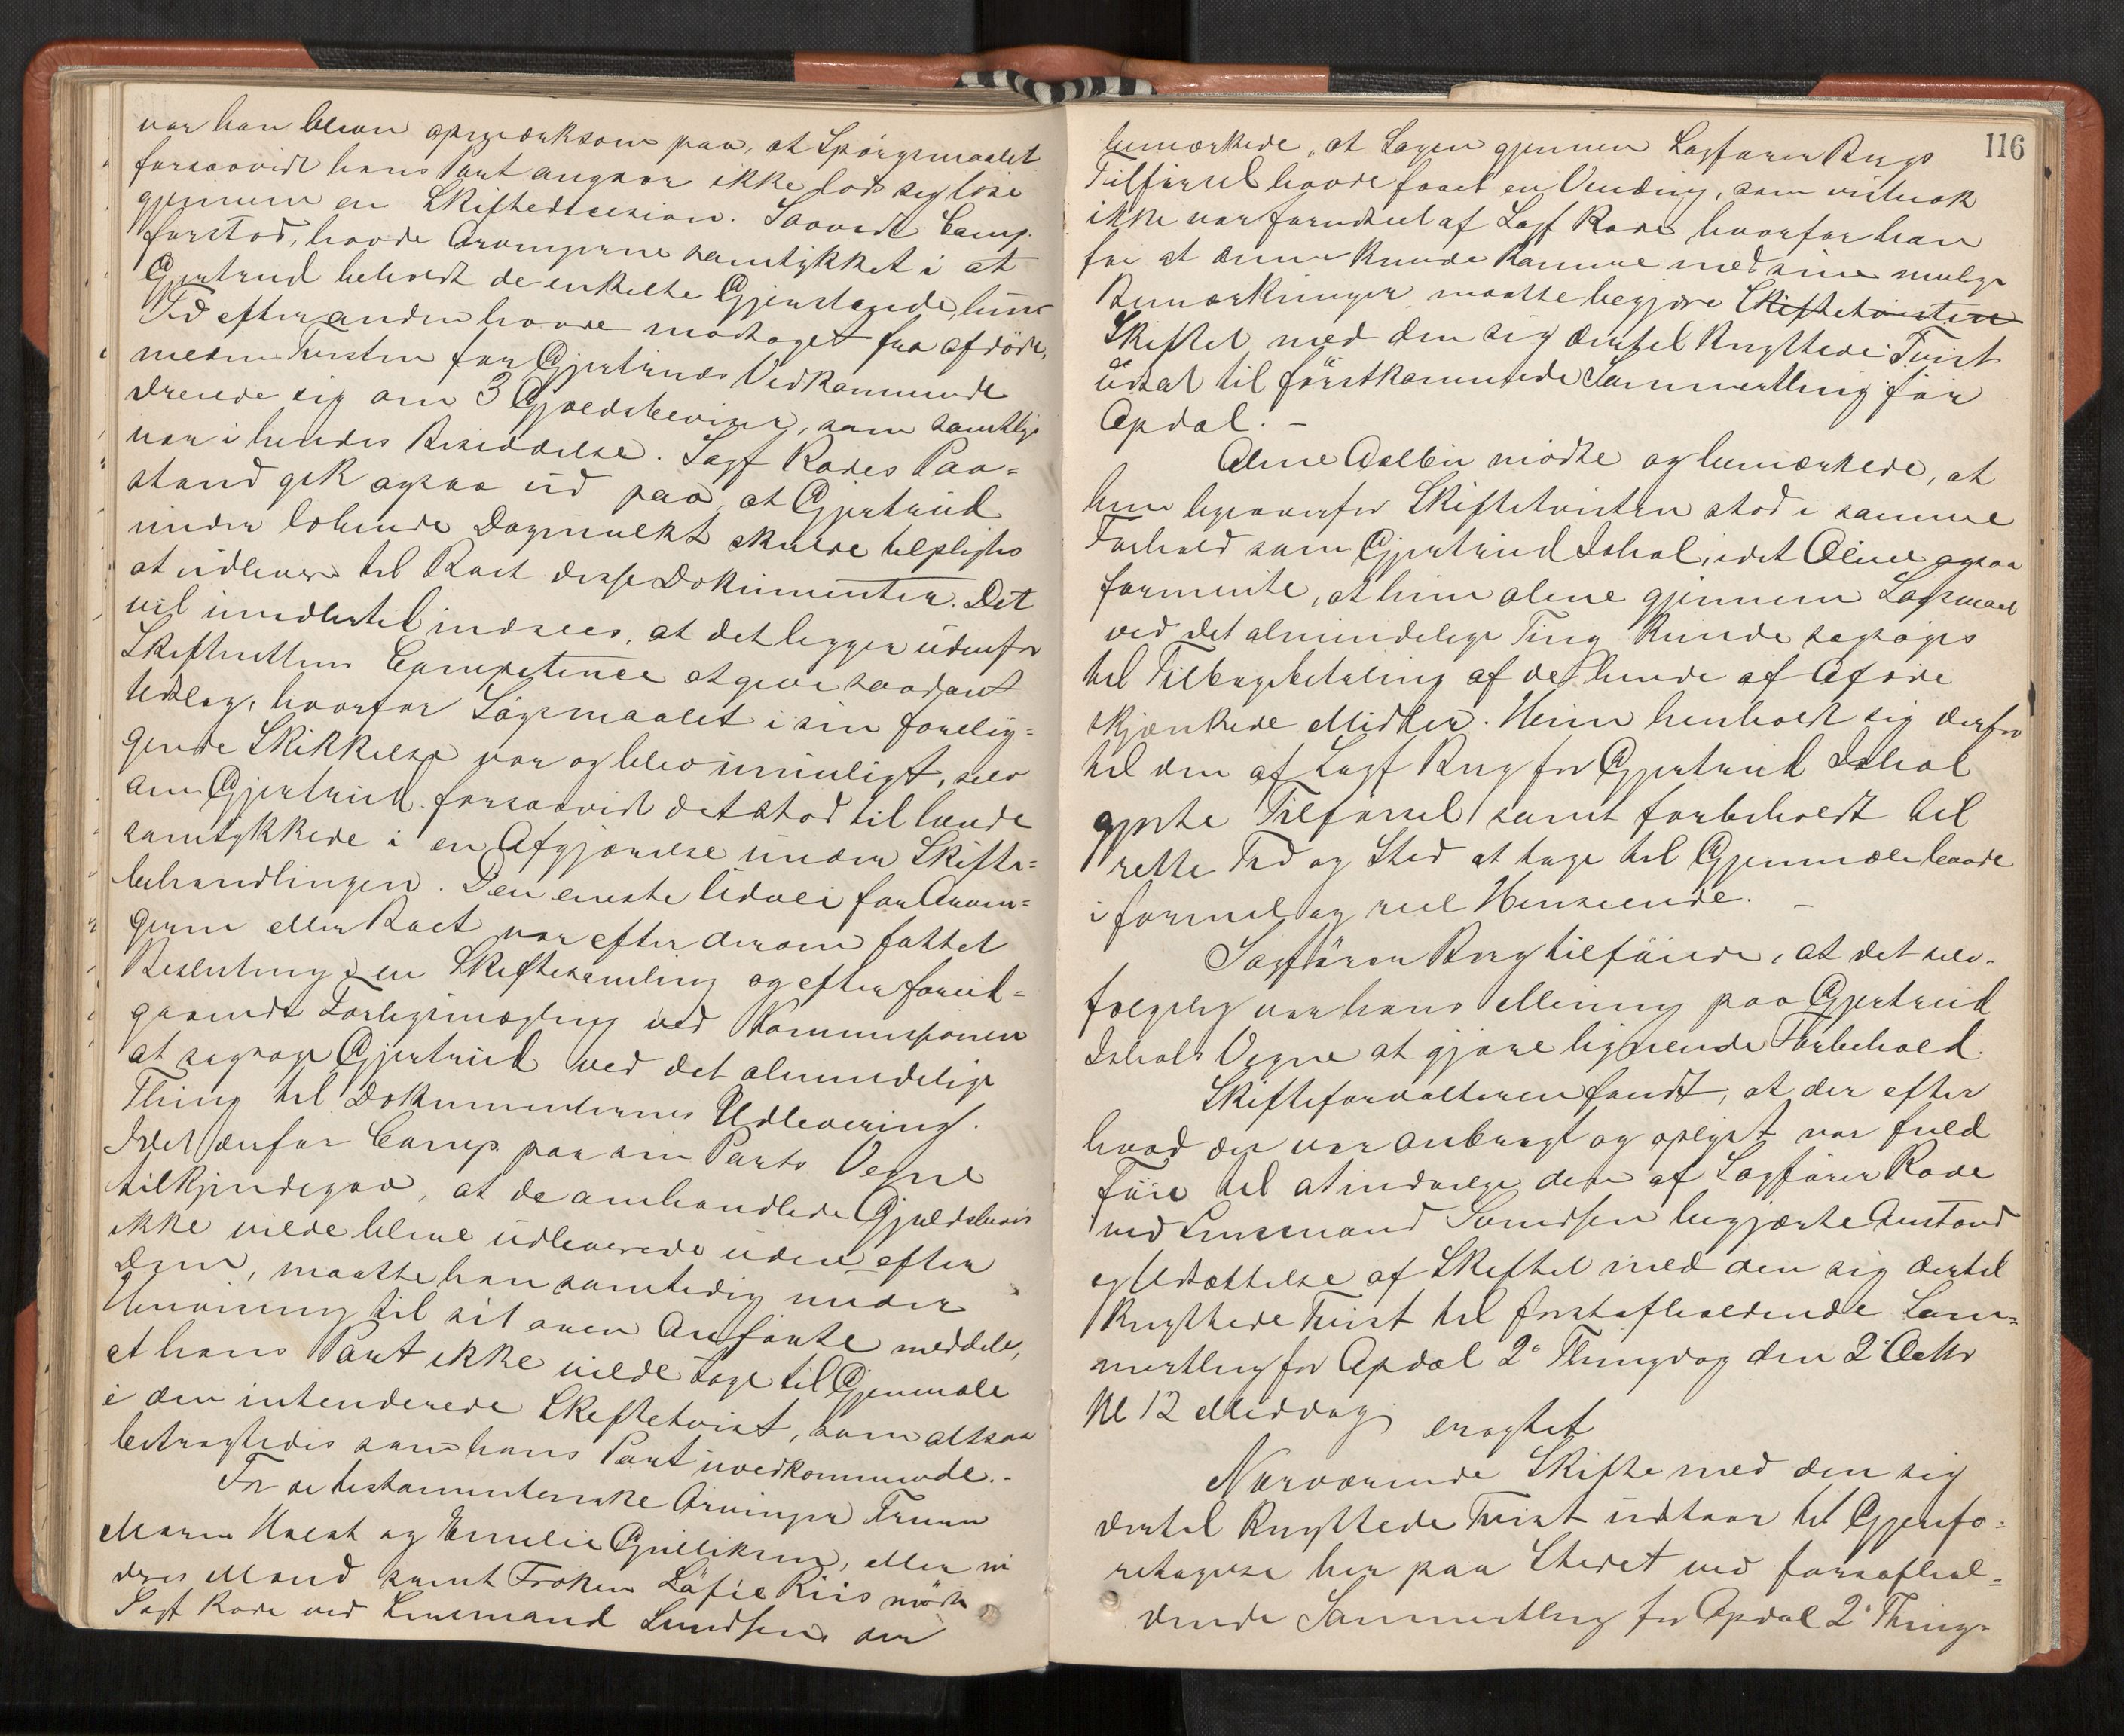 var han bleven opmærksom paa, at Spörgsmaalet
forsaavidt hans Part angaar ikke lod sig löse
gjennem en Skiftedecision. Saavidt Comp.
forstod, havde Arvingerne samtykket i at
Gjertrud beholdt de enkelte Gjenstande, hun
Tid efter anden havde modtaget fra afdöde,
medens Tvisten for Gjertruds Vedkommende
dreiede sig om 3 Gjældsbeviser, som samtlige
var i hendes Besiddelse. Sagf Rodes Paa=
stand gik ogsaa ud paa, at Gjertrud
under löbende Dagmulkt skulde tilpligtes
at udlevere til Boet disse Dokumenter. Det
vil imidlertid indsees, at det ligger udenfor
Skifterettens Competence at give saadant
Udlæg, hvorfor Sögsmaalet i sin forelig=
gende Skikkelse var og blev umuligt, selv
om Gjertrud forsaavidt det stod til hende
samtykkede i en Afgjörelse under Skifte=
behandlingen. Den eneste Udvei for Arvin=
gerne eller Boet var efter derom fattet
Beslutning i en Skiftesamling og efter forud=
gaaende Forligsmægling ved Kommissionen
at sagsöge Gjertrud ved det almindelige
Thing til Dokumenternes Udlevering.
Idet derfor Comp. paa sin Parts Vegne
tilkjendegav, at de omhandlede Gjældsbevis
ikke vilde blive udleverede uden efter
Dom, maatte han samtidig under
Henvisning til sit oven Anförte meddele,
at hans Part ikke vilde tage til Gjenmæle
i den intenderede Skiftetvist, som altsaa
betragtedes som hans Part uvedkommende.-
For de testamentariske Arvinger Fruerne
Maren Holst og Emilie Gulliksen, eller
deres Mænd samt Fröken Sofie Riis mödte
Sagf Rode ved Lensmand Svendsen der
116
bemærkede, at Sagen gjennem Sagförer Brygs
Tilförsel havde faaet en Vending, som vistnok
ikke var forudseet af Sagf Rode hvorfor han
for at denne kunde komme med sine mulige
Bemærkninger maatte begjære Skiftetvisten
Skiftet med den sig dertil knyttede Tvist
udsat til förstkommende Sammertthing for
Opdal. –
Aline Aalbu mödte og bemærkede, at
hun ligeoverfor Skiftetvisten stod i samme
Forhold som Gjertrud Ishol, idet Aline ogsaa
formente, at hun alene gjennem Sögsmaal
ved det almindelige Ting kunde sagsöges
til Tilbagebetaling af de hende af Afdöde
skjænkede Midler. Hun henholdt sig derfor
til den af Sagf Bryg for Gjertrud Ishol
gjorte Tilförsel samt forbeholdt til
rette Tid og Sted at tage til Gjenmæle baade
i formel og reel Henseende. –
Sagförer Bryg tilföiede, at det selv-
fölgelig var hans Mening paa Gjertrud
Ishols Vegne at gjöre lignende Forbehold.
Skifteforvalteren fandt, at der efter
hvad der var anbragt og oplyst var fuld
Föie til at indvilge den af Sagförer Rode
ved Lensmand Svendsen begjærte Anstand
og Udsættelse af Skiftet med den sig dertil
knyttede Tvist til förstafholdende Som=
merthing for Opdal 2' Thingdag den 2' Octbr
Kl 12 Middag
eragtet
Nærværende Skifte med den sig
dertil knyttede Tvist udstaar til Gjenfo=
retagelse her paa Stedet ved förstafhol=
dende Sommerthing for Opdal 2' Thing-